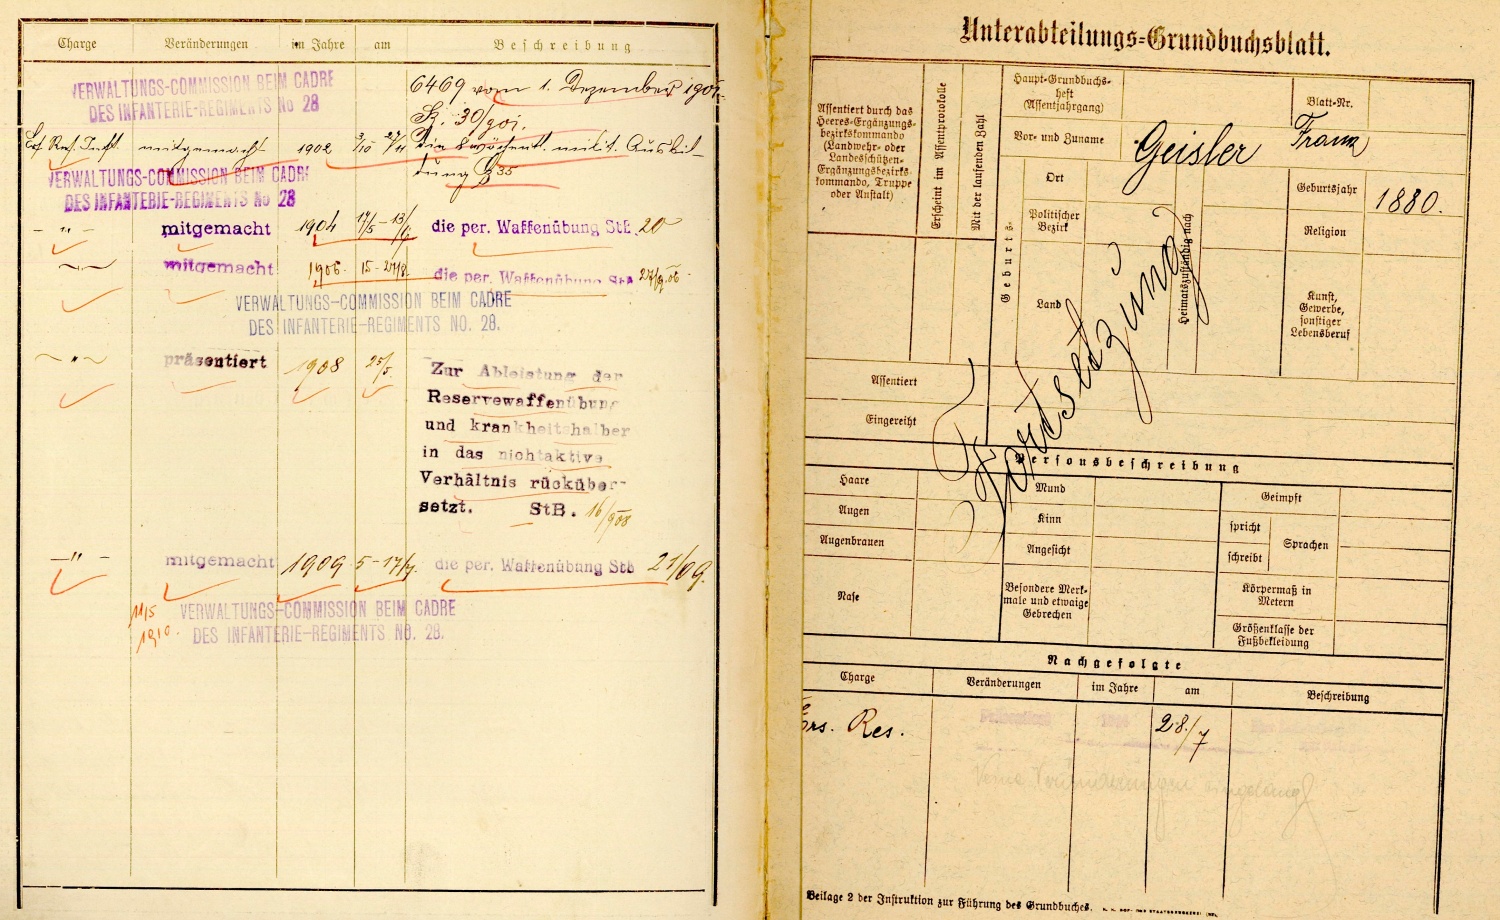 Charge Veränderungen im Jahre am Beschreibung
VERWALTUNGS-COMMISSION BEIM CADRE
DES INFANTERIE-REGIMENTS No 28
6469 vom 1. Dezember 1901.
St. 30/901.
Ers. Res. Inft. mitgemacht 1902 3/10 - 27/11 die 8 wöchentl. milit. Ausbil-
dung 35
VERWALTUNGS-COMMISSION BEIM CADRE
DES INFANTERIE-REGIMENTS No 28
- " - mitgemacht 1904 17/5 - 13/6 die per. Waffenübung StB. 20
mitgemacht 1906. 15-27/8. die per. Waffenübung StB 27/9.06.
VERWALTUNGS-COMMISSION BEIM CADRE
DES INFANTERIE-REGIMENTS NO. 28.
~ " ~ präsentiert 1908 25/5 Zur Ableistung der
Reservewaffenübung
und krankheitshalber
in das nichtaktive
Verhältnis rücküber-
setzt. StB. 16/9 08
- " - mitgemacht 1909 5-17/7. die per. Waffenübung StB 21/09.
11/5
1910.
VERWALTUNGS-COMMISSION BEIM CADRE
DES INFANTERIE-REGIMENTS NO. 28.
Unterabteilungs-Grundbuchsblatt.
Assentiert durch das
Heeres-Ergänzungs-
bezirkskommando
(Landwehr- oder
Landesschützen-
Ergänzungsbezirks-
kommando, Truppe
oder Anstalt)
Erscheint im Assentprotokolle
Mit der laufenden Zahl
Haupt-Grundbuchs-
heft
(Assentjahrgang)
Blatt-Nr.
Vor- und Zuname Geisler Franz
Geburts-
Ort
Politischer
Bezirk
Land
Heimatszuständig nach
Geburtsjahr 1880.
Religion
Kunst,
Gewerbe,
sonstiger
Lebensberuf
Assentiert
Eingereiht
Fortsetzung
Personsbeschreibung
Haare Mund Geimpft
Augen Kinn spricht Sprachen
Augenbrauen Angesicht schreibt
Nase
Besondere Merk-
male und etwaige
Gebrechen
Körpermaß in
Metern
Größenklasse der
Fußbekleidung
Nachgefolgte
Charge Veränderungen im Jahre am Beschreibung
Ers. Res. Präsentiert 28./7
Keine Veränderungen eingelangt
Beilage 2 der Instruktion zur Führung des Grundbuches.